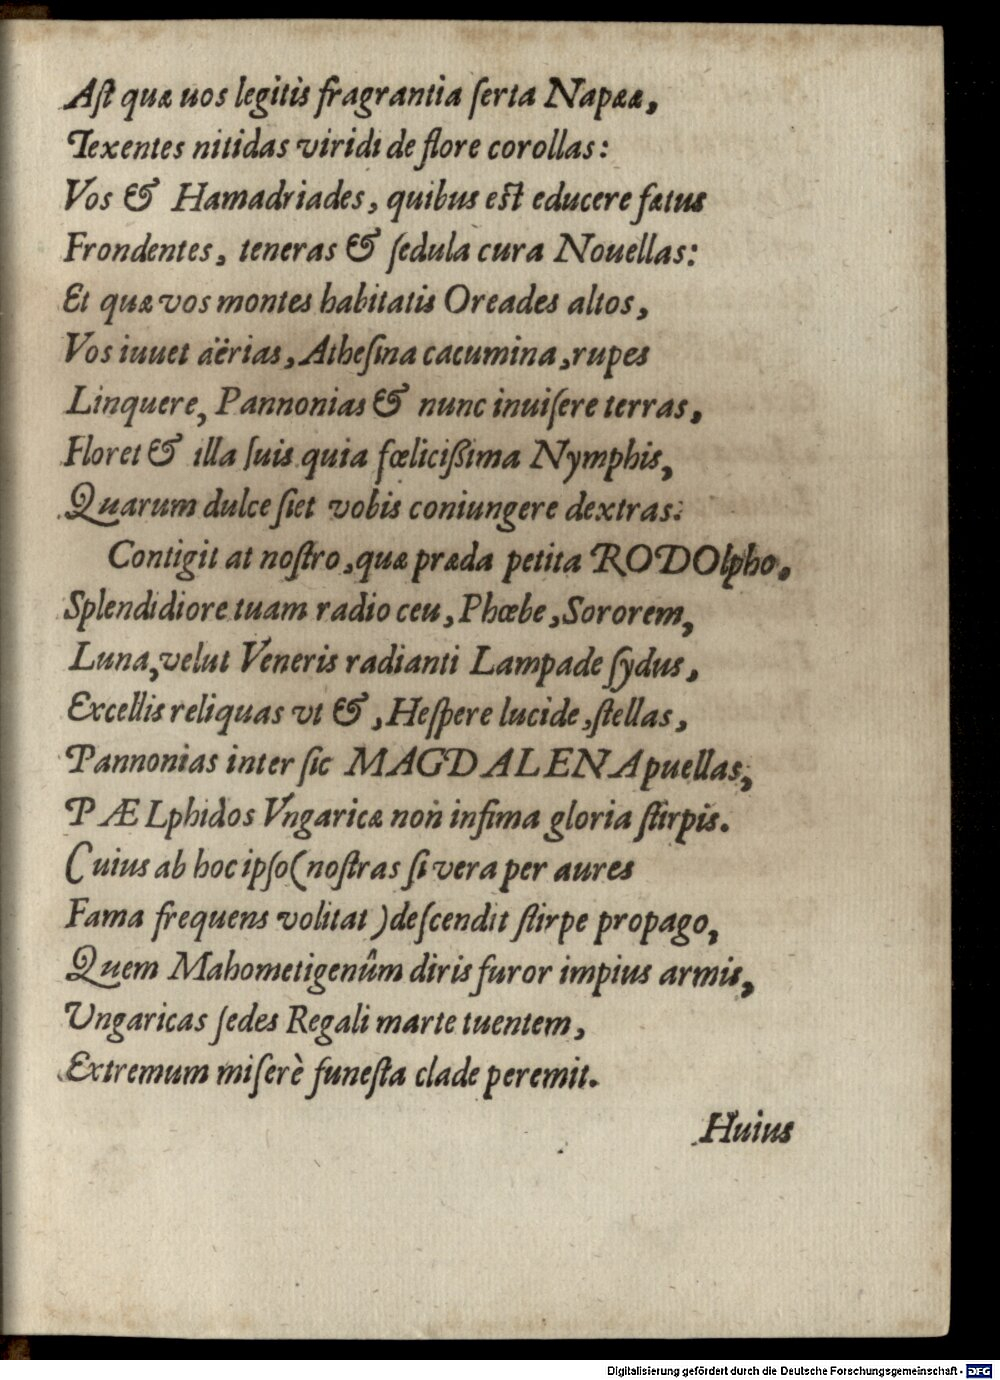 Aſt quæ uos legitis fragrantia ſerta Napææ,
Texentes nitidas viridi de flore corollas:
Vos & Hamadriades, quibus eſt educere fætus
Frondentes, teneras & ſedula cura Nouellas:
Et quæ vos montes habitatis Oreades altos,
Vos iuuet aërias, Atheſina cacumina, rupes
Linquere, Pannonias & nunc inuiſere terras,
Floret & illa ſuis quia fœliciſsima Nymphis,
Quarum dulce ſiet vobis coniungere dextras.
Contigit at noſtro, quæ præda petita RODOlpho.
Splendidiore tuam radio ceu, Phœbe, Sororem,
Luna, velut Veneris radianti Lampade ſydus,
Excellis reliquas vt &, Heſpere lucide, ſtellas,
Pannonias inter ſic MAGDALENA puellas,
PÆLphidos Vngaricæ non infima gloria ſtirpis.
Cuius ab hoc ipſo (noſtras ſi vera per aures
Fama frequens volitat) deſcendit ſtirpe propago,
Quem Mahometigenûm diris furor impius armis,
Vngaricas ſedes Regali marte tuentem,
Extremum miſerè funeſta clade peremit.
Huius
Digitalisierung gefördert durch die Deutsche Forschungsgemeinschaft - DFG